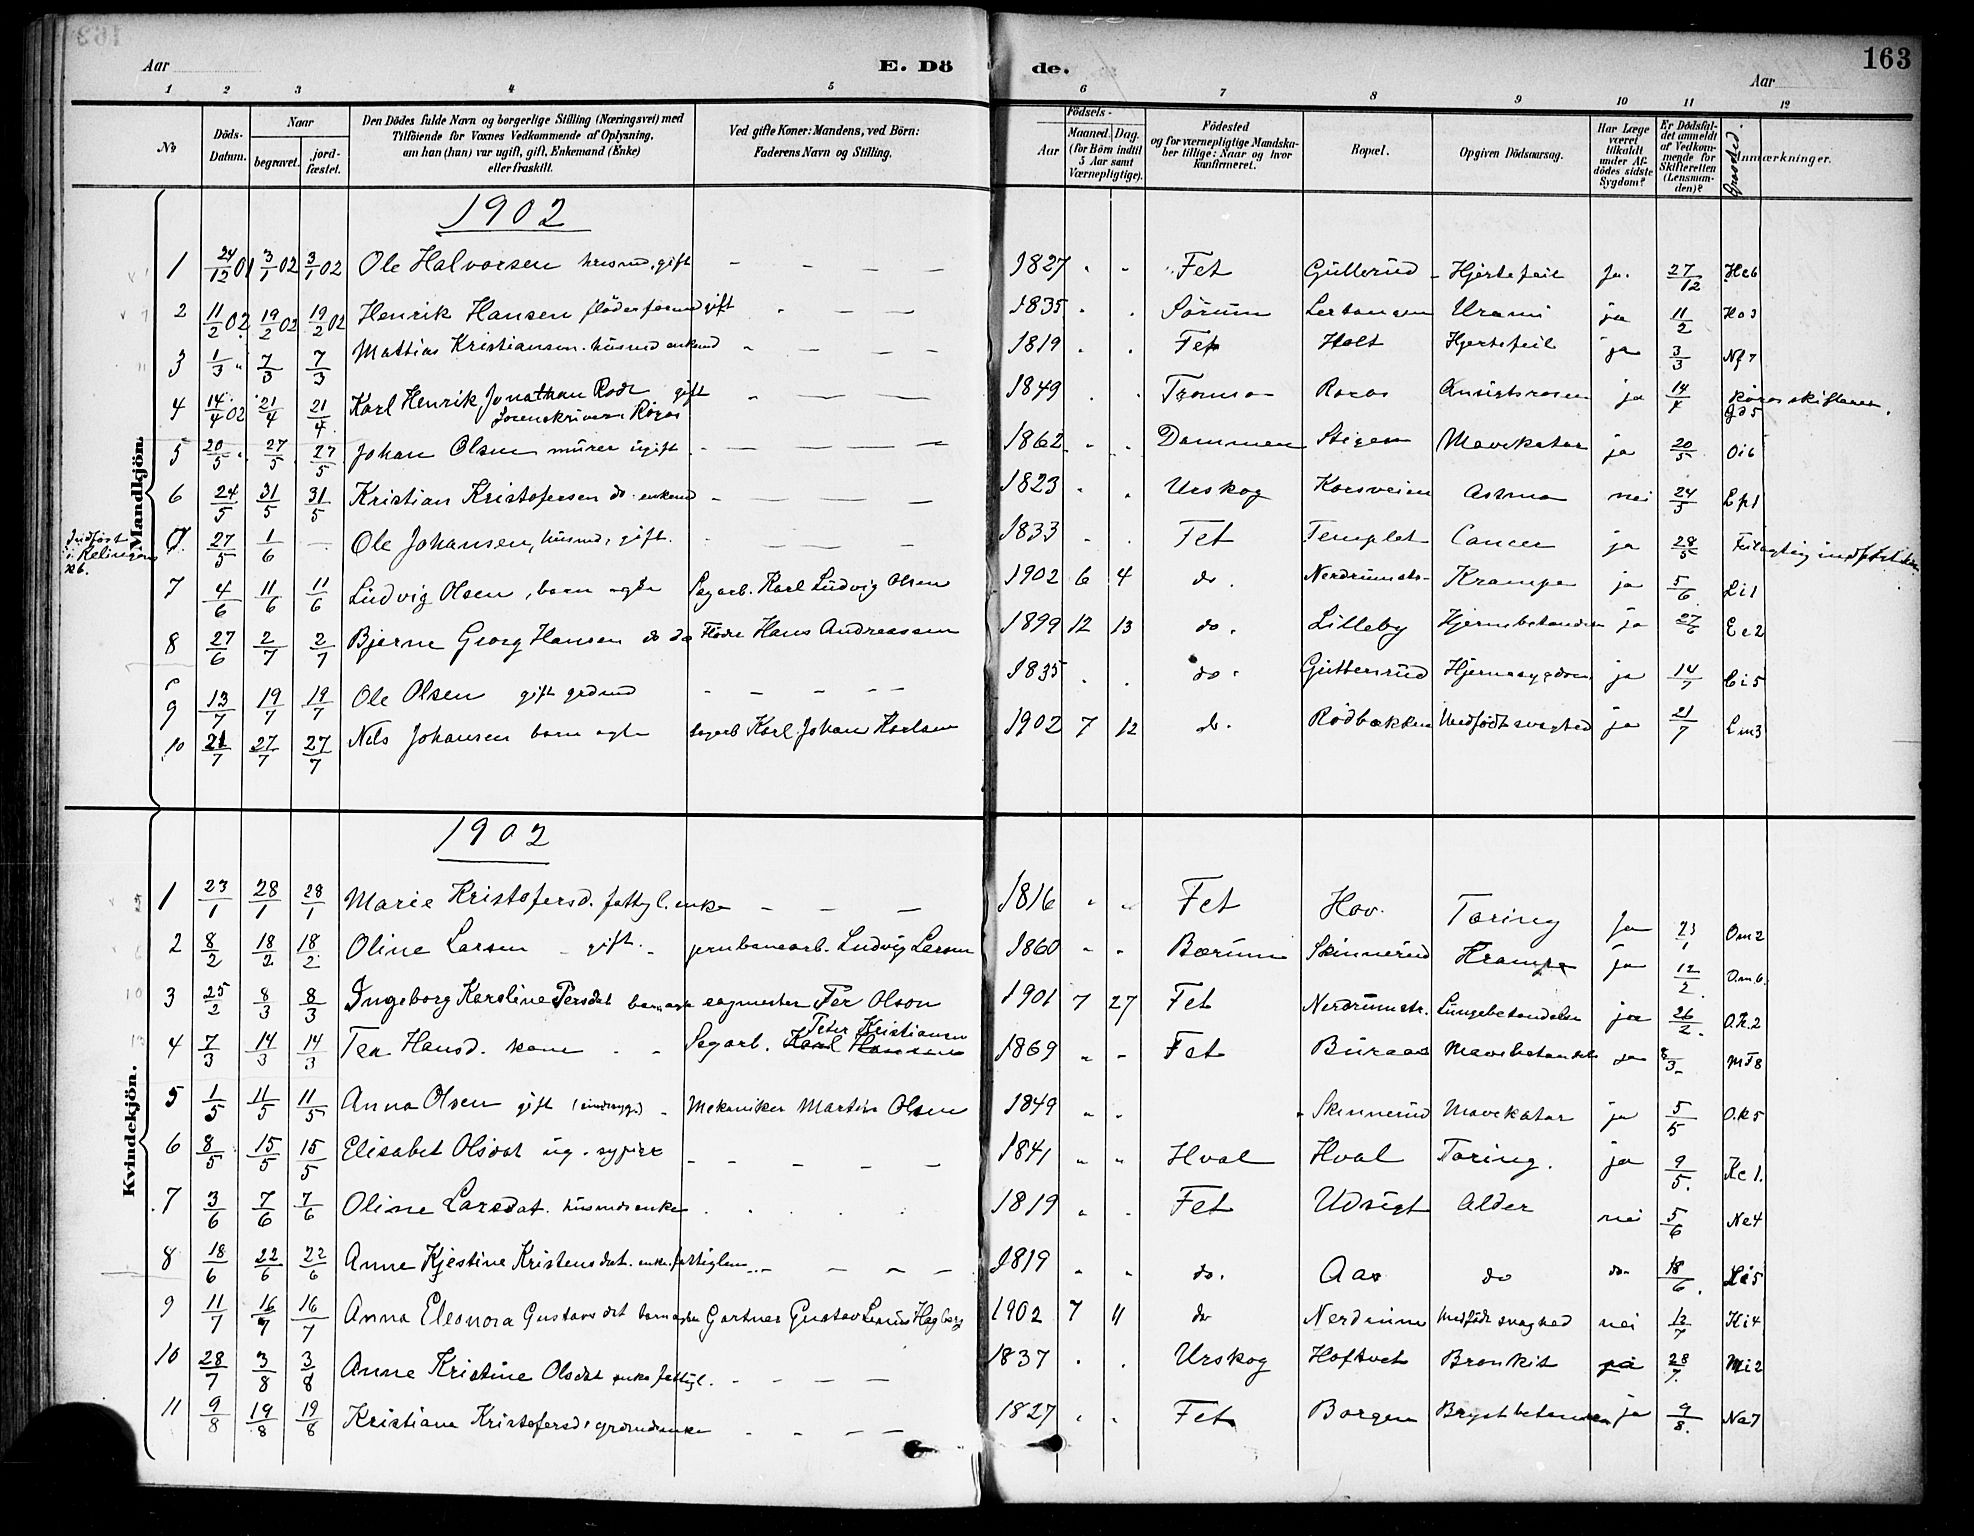 163
Aar
E. Dö
de.
Aar
1 2 3 4 5 6 7 8 9 10 11 12
No
Döds-Datum.
Naar
begravet.
jord-fæstet.
Den Dödes fulde Navn og borgerlige Stilling (Næringsvei) med
Tilföiende for Voxnes Vedkommende af Oplysning,
om han (hun) var ugift, gift, Enkemand (Enke)
eller fraskilt.
Ved gifte Koner: Mandens, ved Börn:
Faderens Navn og Stilling.
Födsels-
Aar
Maaned. Dag.
(for Börn indtil 5 Aar samt Værnepligtige).
Födested
og for værnepligtige Mandska-
ber tillige: Naar og hvor
konfirmeret.
Bopæl.
Opgiven Dödsaarsag.
Har Læge været tilkaldt under Af-dödes sidste Sygdom?
Er Dödsfal-det anmeldt af Vedkom-mende for Skifteretten (Lensman-den)?
Anmærkninger.
Mandkjön.
1902
1 24/12 01 3/1 02 3/1 02 Ole Halvorsen husmd. gift 1827 Fet Gullerud Hjertefeil Ja. 27/12 He6
2 11/2 02 19/2 02 19/2 02 Henrik Hansen gift 1835 Sörum Uræmi ja 11/2 Ho3
3 1/3 7/3 7/3 Mattias Kristiansen husmd enkemd 1819 Fet Holt Hjertefeil ja 3/3 Nf7
4 14/4 02 21/4 21/4 Karl Henrik Jonathan Rode gift
Sorenskriver Röros 1849 Tromsø Roros Ansigtsrosen ja 14/4 Röros skifteret.
Gd5
5 20/5 27/5 27/5 Johan Olsen murer ugift 1862 Dammen Stigen Mavekatar ja 20/5 Oi6
6 24/5 31/5 31/5 Kristian Kristofersen do enkemd 1823 Urskog Korsveien Astma nei 24/5 Lp1
Indført i Relingens kb.
7 27/5 1/6 Ole Johansen, husmd, gift. 1833 Fet Templet Cancer ja 28/5 Feilagtig indført
7 4/6 11/6 11/6 Ludvig Olsen, barn ægte Sagarb. Karl Ludvig Olsen 1902 6 4 do. Nerdrumsts- Krampe ja 5/6 Li1
8 27/6 2/7 2/7 Bjerne Georg Hansen do do Fløder Hans Andreassen 1899 12 13 do. Lilleby Hjernebetændelse ja 27/6 Ee2
9 13/7 19/7 19/7 Ole Olsen gift grdmd 1835 do. Guttersrud Hjernesygdom ja 14/7 Ci5
10 21/7 27/7 27/7 Nils Johansen barn ægte Sagarb Karl Johan Karlsen 1902 7 12 do. Rödbækken Medfödt svaghed ja 21/7 Lm3
Kvindekjön.
1902
1 23/1 28/1 28/1 Marie Kristofersd. fattigl. enke 1816 Fet Hov. Tæring Ja 23/1 Om2
2 8/2 18/2 18/2 Oline Larsen gift. jernbanearb. Ludvig Larsen 1860 Bærum Skinnerud Krampe ja 12/2 Om6
3 25/2 8/3 8/3 Ingeborg Karoline Persdat barn ægte sagmester Per Olson 1901 7 27 Fet Nerdrumstr. Lungebetændelse ja 26/2. O.K.2
4 7/3 14/3 14/3 Tea Hansd. kone Sagarb. Karl Hansen Peter Kristiansen 1869 Fet Buraas Mavebetændelse ja 8/3 MF8
5 1/5 11/5 11/5 Anna Olsen gift Mekaniker Martin Olsen 1849 Skinnerud Mavekatar ja 5/5 O.k5
6 8/5 15/5 15/5 Elisabet Olsdat ug. sypige 1841 Hval Hval Tæring. ja 9/5. Kc1.
7 3/6 7/6 7/6 Oline Larsdat. husmdsenke 1819 Fet Udsigt Alder nei 5/6 Ne4
8 18/6 22/6 22/6 Anne Kjestine Kristensdat. enke fattiglem 1819 do. Aas do do. 18/6. La5
9 11/7 16/7 16/7 Anna Eleonora Gustavsdat barn ægte Gartner Gustav Linus Hagberg 1902 7 11 do Nerdrum Medfödt svaghed nei 12/7 Hi4
10 28/7 3/8 3/8 Anne Kristine Olsdat enke fattigl. 1837 Urskog Hoftvet Bronkit ja 28/7. Mi2
11 9/8 19/8 19/8 Kristiane Kristofersd. grdmdsenke 1827 Fet Borgen Brystbetændelse ja 9/8. Na7